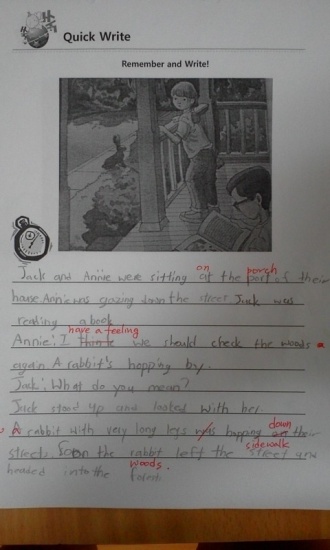 Quick Write
Remember and Write!
on porch
Jack and Annie were sitting at the port of their
house Annie was gazing down the street Jack was
reading a book
have a feeling
Annie: I think we should check the woods
again A rabbit's hopping by.
Jack: What do you mean?
Jack stood up and looked with her
down
A rabbit with very long legs was hopping on their
sidewalk
street. Soon the rabbit left the street and
woods.
headed into the forest